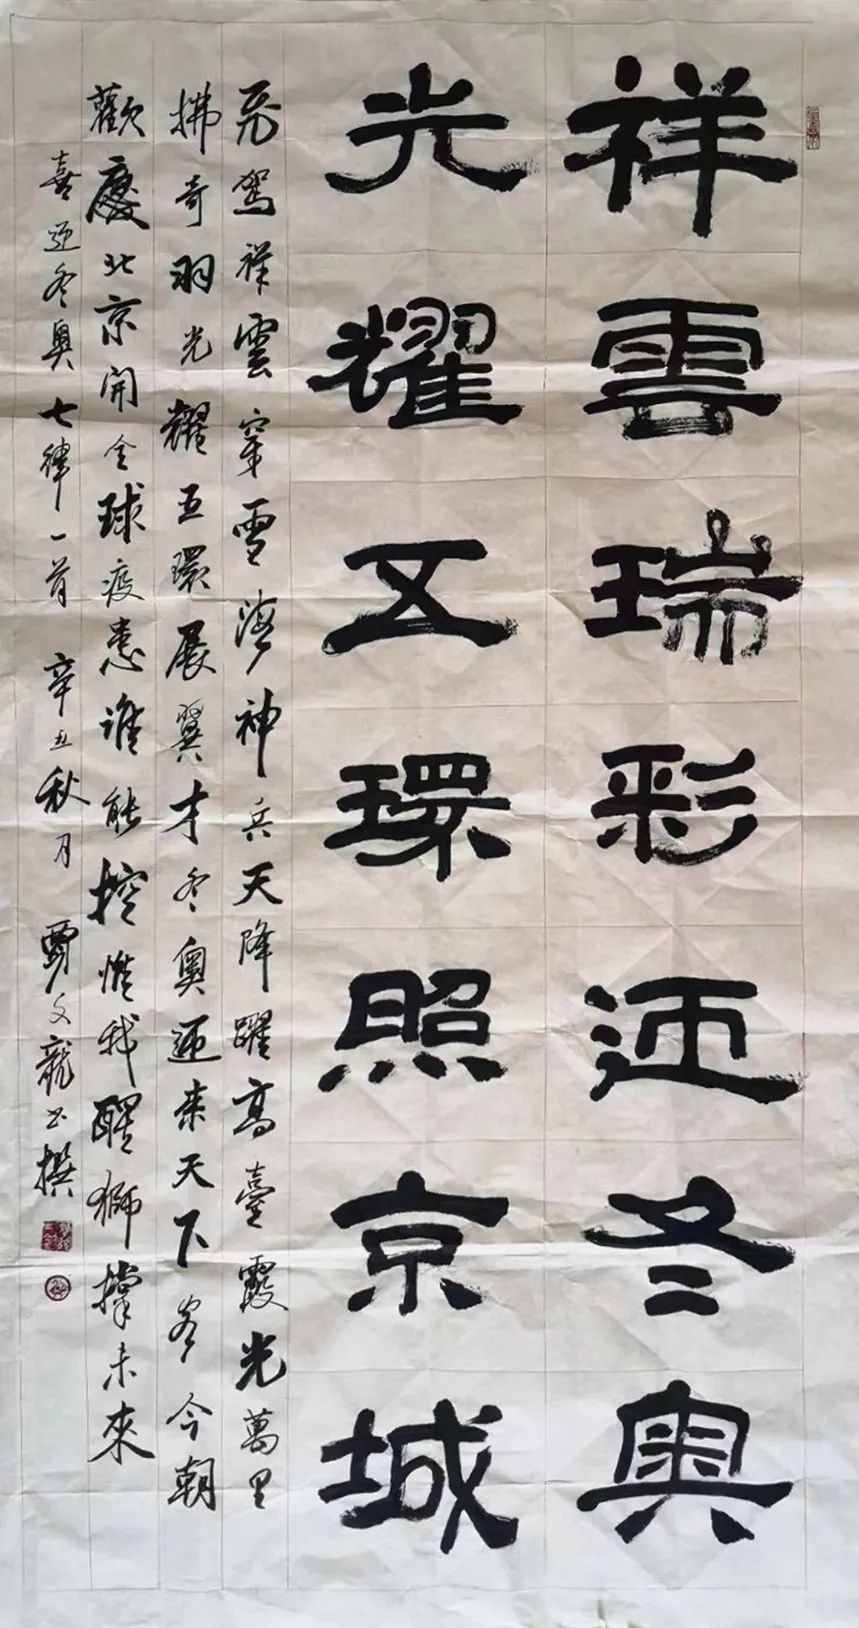 祥雲瑞彩迎冬奥
光耀五環照京城
飛駕祥雲穿雪海神兵天降躍高臺霞光萬里
拂奇羽光耀五環展翼才冬奥迎来天下客今朝
歡慶北京開全球疫患誰能控惟我醒獅撑未來
喜迎冬奥七律一首 辛丑秋月 賈文龍书撰